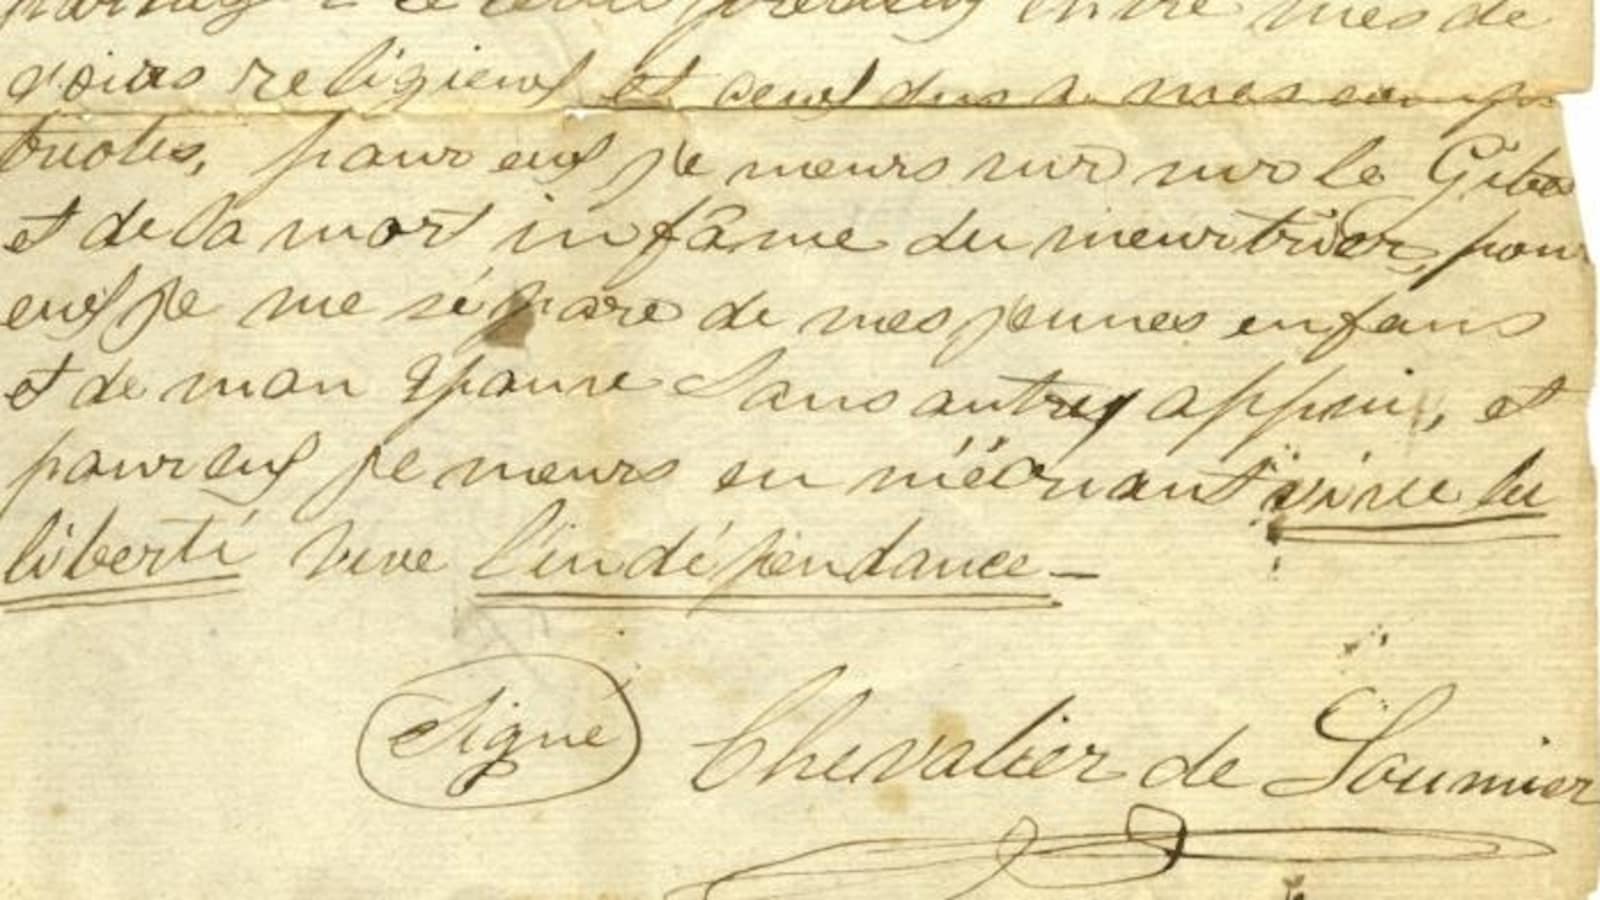 entre mes de
voirs religieux et ceux dus a mes comp
triotes, pour eux je meurs sur sur le Gibe
et de la mort infâme du meurtrier, pour
eux je me sépare de mes jeunes enfans
et de mon Epouse Sans autres appui, et
pour eux je meurs en m'écriant vive la
liberté vive l'indépendance —
Signé Chevalier de Lorimier